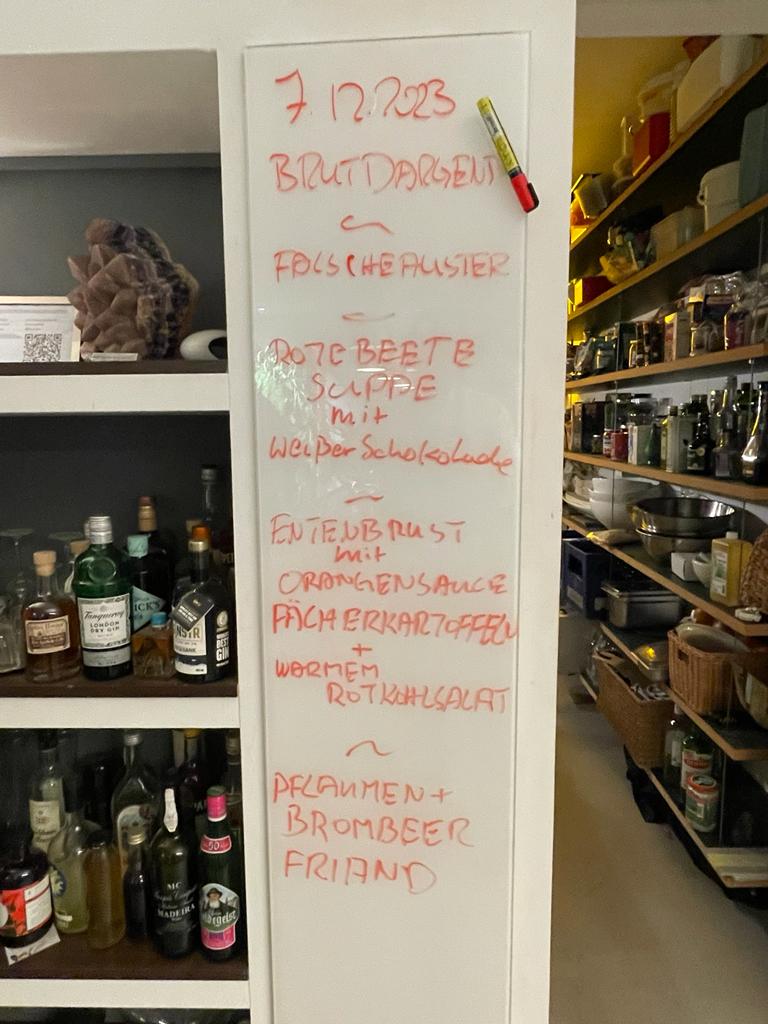 7.12.2023
BRUTDARGENT
FALSCHE AUSTER
ROTE BEETE
SUPPE
mit
Weißer Schokolade
ENTENBRUST
mit
ORANGENSAUCE
FÄCHERKARTOFFELN
+
WARMEM
ROTKOHLSALAT
PFLAUMEN +
BROMBEER
FRIAND
Tanqueray
LONDON
DRY GIN
MADEIRA